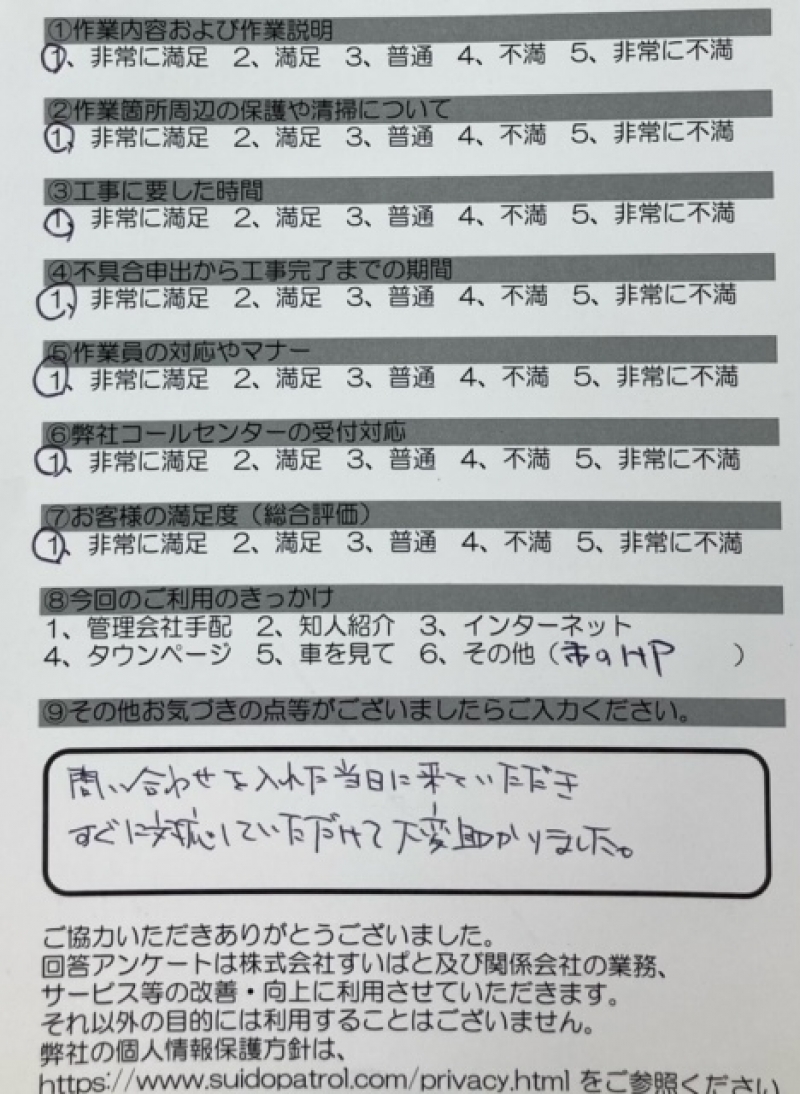 ①作業内容および作業説明
1、非常に満足 2、満足 3、普通 4、不満 5、非常に不満
②作業箇所周辺の保護や清掃について
1、非常に満足 2、満足 3、普通 4、不満 5、非常に不満
③工事に要した時間
1、非常に満足 2、満足 3、普通 4、不満 5、非常に不満
④不具合申出から工事完了までの期間
1、非常に満足 2、満足 3、普通 4、不満 5、非常に不満
⑤作業員の対応やマナー
1、非常に満足 2、満足 3、普通 4、不満 5、非常に不満
⑥弊社コールセンターの受付対応
1、非常に満足 2、満足 3、普通 4、不満 5、非常に不満
⑦お客様の満足度(総合評価)
1、非常に満足 2、満足 3、普通 4、不満 5、非常に不満
⑧今回のご利用のきっかけ
1、管理会社手配 2、知人紹介 3、インターネット
4、タウンページ 5、車を見て 6、その他(市のHP )
⑨その他お気づきの点等がございましたらご入力ください。
問い合わせを入れた当日に来ていただき
すぐに対応していただけて大変助かりました。
ご協力いただきありがとうございました。
回答アンケートは株式会社すいぱと及び関係会社の業務、
サービス等の改善・向上に利用させていただきます。
それ以外の目的には利用することはございません。
弊社の個人情報保護方針は、
https://www.suidopatrol.com/privacy.html をご参照ください